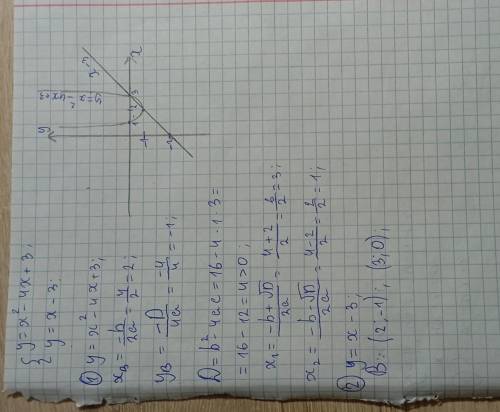 { y = x² - 4x + 3;
y = x - 3;
① y = x² - 4x + 3;
x_B = -b/2a = 4/2 = 2;
y_B = -D/4a = -4/4 = -1;
D = b² - 4ac = 16 - 4 · 1 · 3 =
= 16 - 12 = 4 > 0;
x₁ = -b + √D/2a = 4 + 2/2 = 6/2 = 3;
x₂ = -b - √D/2a = 4 - 2/2 = 2/2 = 1;
② y = x - 3;
B: (2; -1); (3; 0);
y
y = x² - 4x + 3
x - 3
x
1 2 3
-1
-3